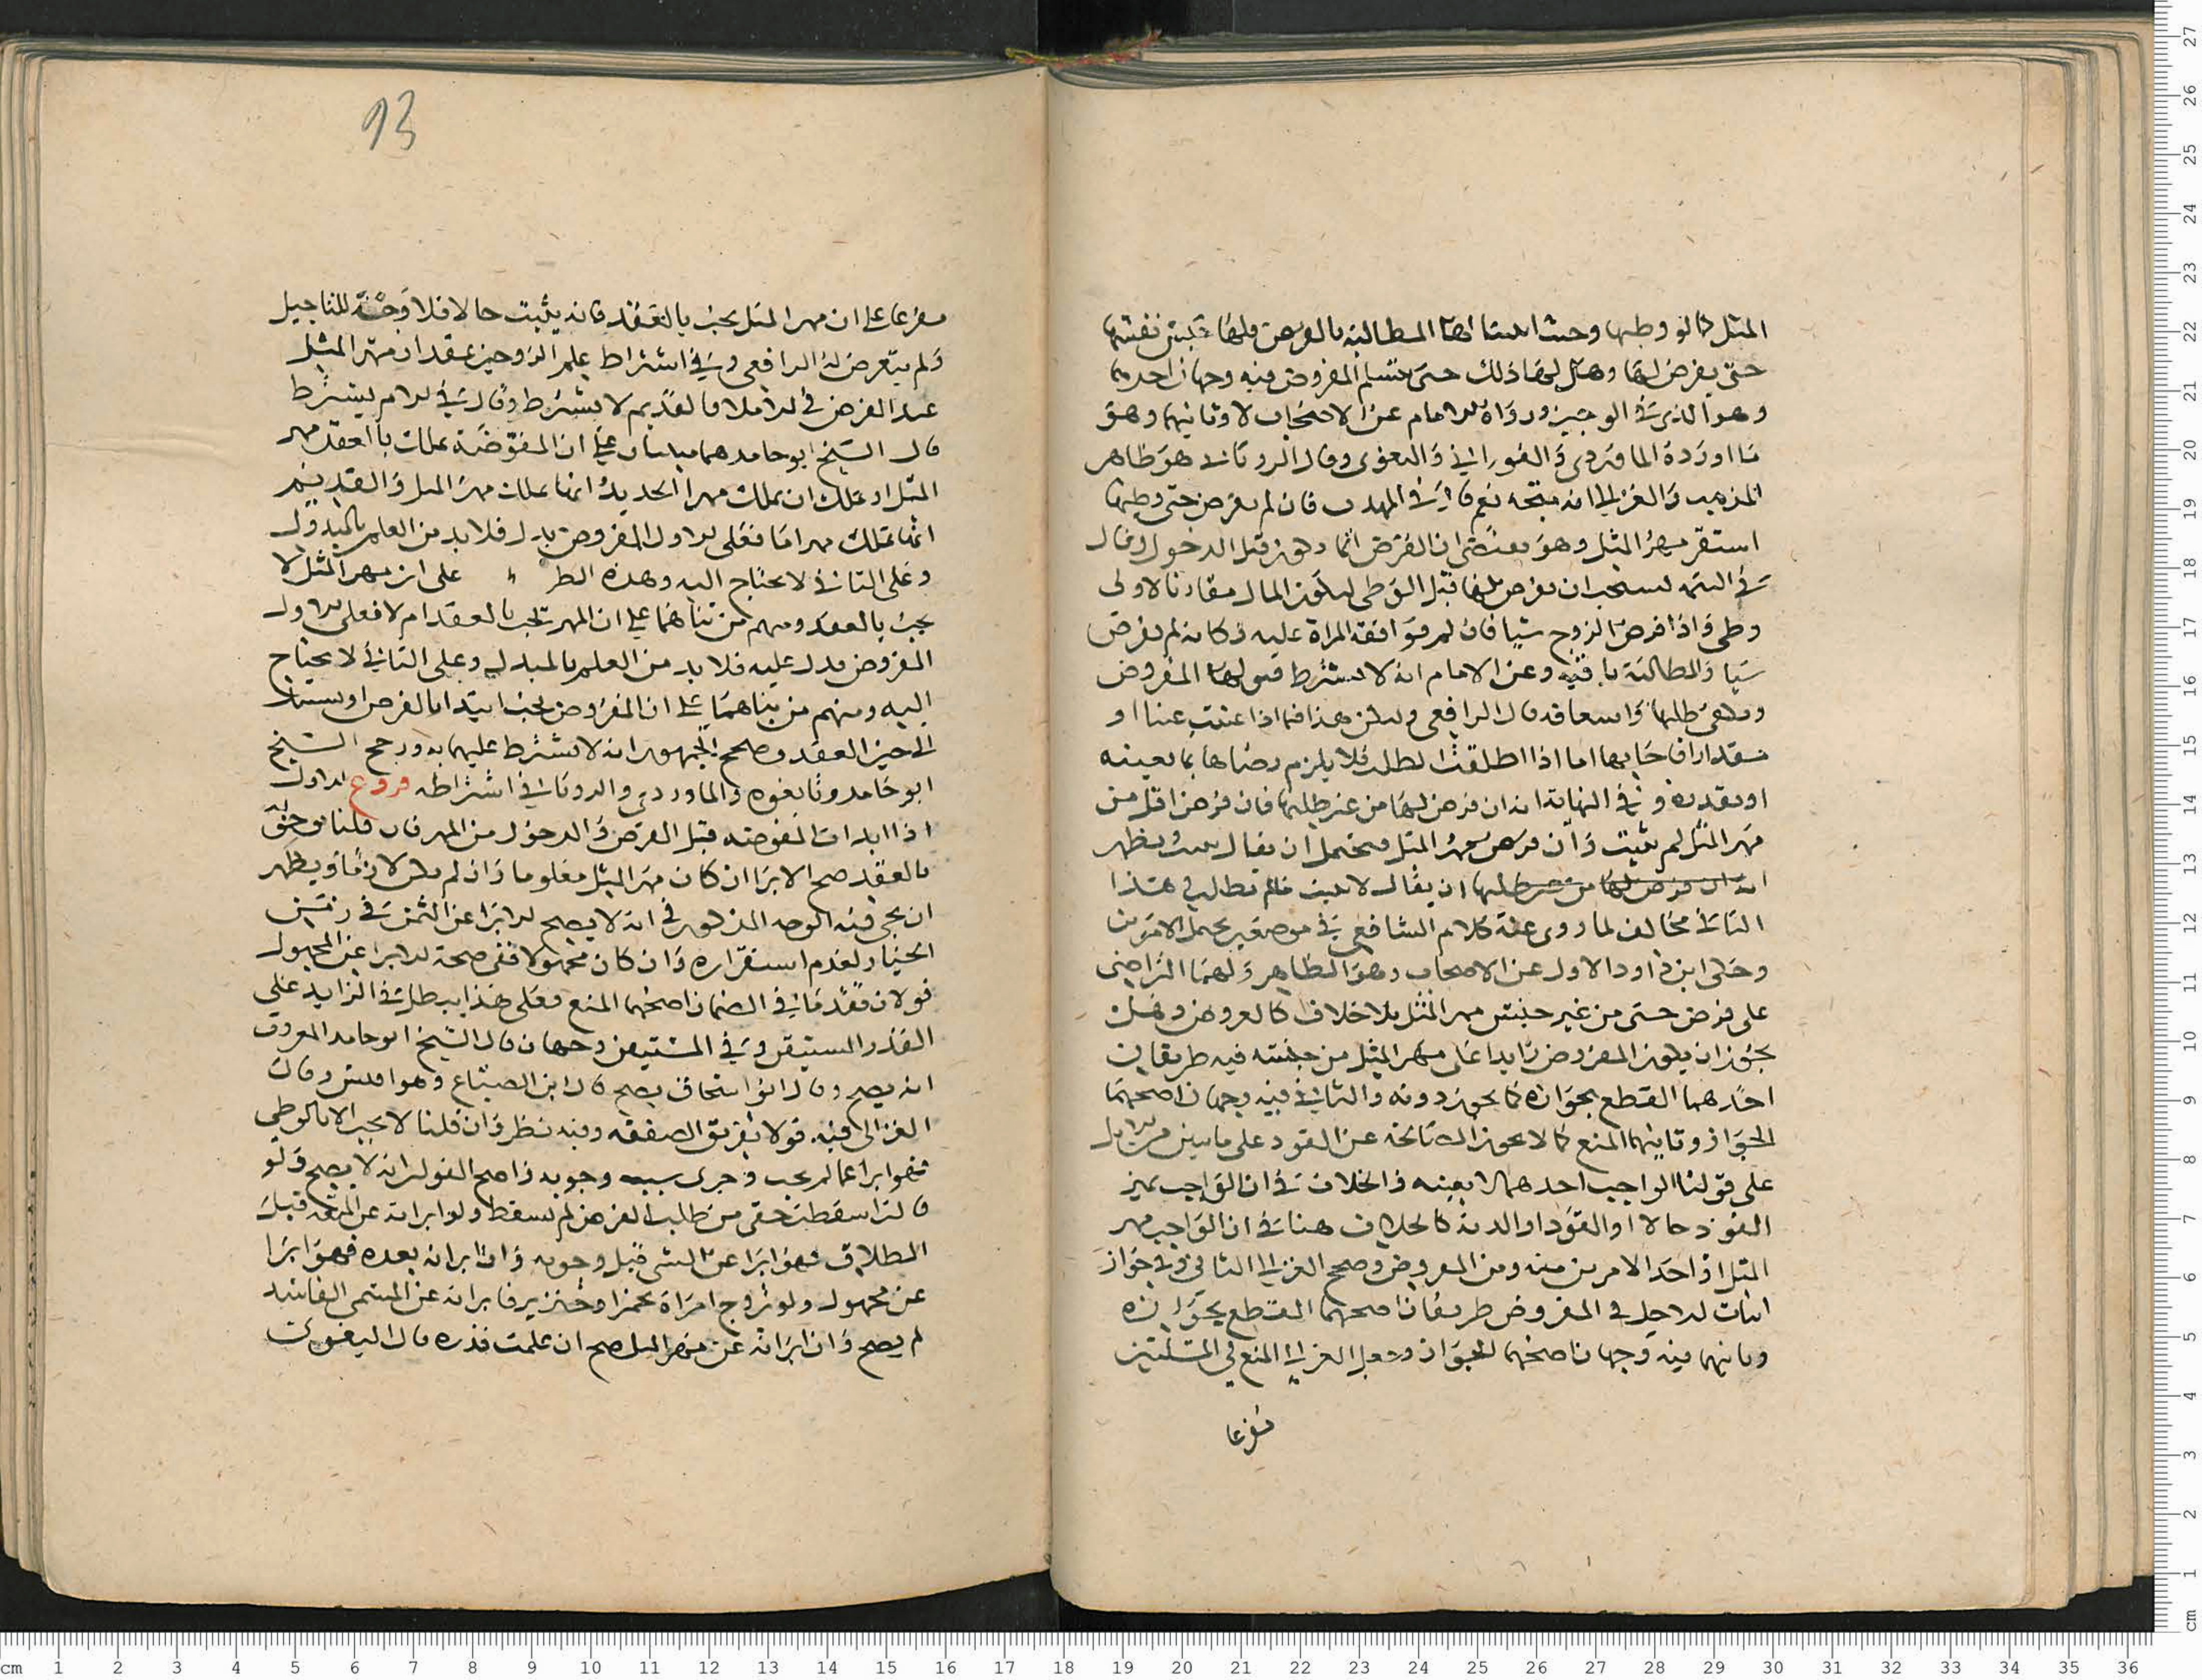 المثل كما لو وطيها وحيث اثبتنا لها المطالبة بالفرض فلها حبس نفسها
حتى يفرض لها وهل لها ذلك حتى تتسلم المفروض فيه وجهان احدهما
وهو الذي في الوجيز ورواه الامام عن الاصحاب لا وثانيهما وهو
ما اورده الماوردي والفوراني والبغوي وقال الروياني هو ظاهر
المذهب والغزالي انه متجه نعم قال في المهذب فان لم يفرض حتى وطيها
استقر مهر المثل وهو يقتضي ان الفرض انما يكون قبل الدخول وقال
في التتمة يستحب ان يفرض لها قبل الوطي ليكون المال مقارنا لاولى
وطي واذا فرض الزوج شيا فان لم توافقه المراة عليه فكانه لم يفرض
شيا والمطالبة باقية وعن الامام انه لا يشترط قبولها المفروض
ويكفي طلبها واسعافه قال الرافعي وليكن هذا فيما اذا عينت عينا او
مقدارا فاجابها اما اذا اطلقت الطلب فلا يلزم رضاها بما يعينه
او يقدره وفي النهاية انه ان فرض لها من غير طلبها فان فرض اقل من
مهر المثل لم يثبت وان فرض مهر المثل فيحتمل ان يقال يثبت ويظهر
انه ان فرض لها من غير طلبها ان يقال لا يثبت ما لم تطلب في هذا
الثاني مخالف لما روي عنه كلام الشافعي في موضعين يحتمل الامرين
وحكى ابن داود الاول عن الاصحاب وهو الظاهر ولهما التراضي
على فرض شي من غير جنس مهر المثل بلا خلاف كالعروض وهل
يجوز ان يكون المفروض زايدا على مهر المثل من جنسه فيه طريقان
احدهما القطع بجوازه كما يجوز دونه والثاني فيه وجهان اصحهما
الجواز وثانيهما المنع كما لا يجوز المصالحة عن القود على مايتين من الابل
على قولنا الواجب احدهما لا بعينه والخلاف في ان الواجب غير
القود حالا او القود او الدية كالخلاف هنا في ان الواجب مهر
المثل او احد الامرين منه ومن المفروض وصحح الغزالي الثاني وفي جواز
اثبات الاجل في المفروض طريقان اصحهما القطع بجوازه
وثانيهما فيه وجهان اصحهما الجواز وجعل الغزالي المنع في المسئلتين
مفرعا
93
مفرعا على ان مهر المثل يجب بالعقد فانه يثبت حالا فلا وجه للتاجيل
ولم يتعرض له الرافعي وفي اشتراط علم الزوجين بمقدار مهر المثل
عند الفرض في الاملا والقديم لا يشترط وقال في الام يشترط
قال الشيخ ابو حامد هما مبنيان على ان المفوضة تملك بالعقد مهر
المثل او تملك ان تملك مهرا الجديد انها تملك مهر المثل والقديم
انها تملك مهرا ما فعلى الاول المفروض بدل فلا بد من العلم بالمبدول
وعلى الثاني لا يحتاج اليه وهذه الط على ان مهر المثل لا
يجب بالعقد ومنهم من بناهما على ان المهر يجب بالعقد ام لا فعلى الاول
المفروض بدل عليه فلا بد من العلم بالمبدل وعلى الثاني لا يحتاج
اليه ومنهم من بناهما على ان المفروض يجب ابتدا بالفرض او يستند
الى حين العقد وصحح الجمهور انه لا يشترط عليهما به ورجح الشيخ
ابو حامد وتابعوه والماوردي والروياني اشتراطه فروع الاول
اذا ابرات المفوضة قبل الفرض والدخول من المهر فان قلنا يوجب
بالعقد صح الابرا ان كان مهر المثل معلوما وان لم يكن لازما ويظهر
ان يجي فيه الوجه المذكور في انه لا يصح الابرا عن الثمن في زمن
الخيار لعدم استقراره وان كان مجهولا ففي صحة الابرا عن المجهول
قولان تقدما في الضمان اصحهما المنع فعلى هذا يبطل في الزايد على
القدر المستيقن وفي المستيقن وجهان قال الشيخ ابو حامد المعروف
انه يصح وقال ابو اسحاق يصح قال ابن الصباغ وهو اقيس وقال
الغزالي فيه قولا تفريق الصفقة وفيه نظر وان قلنا لا يجب الا بالوطي
فهو ابرا عما لم يجب وجرى سبب وجوبه واصح القولين انه لا يصح ولو
قالت اسقطت حقي من طلب الفرض لم يسقط ولو ابراته عن المتعة قبل
الطلاق فهو ابرا عن الشي قبل وجوبه وان ابراته بعده فهو ابرا
عن مجهول ولو تزوج امراة بخمر او خنزير فابراته عن المسمى الفاسد
لم يصح وان ابراته عن مهر المثل صح ان علمت قدره قال اليغوي